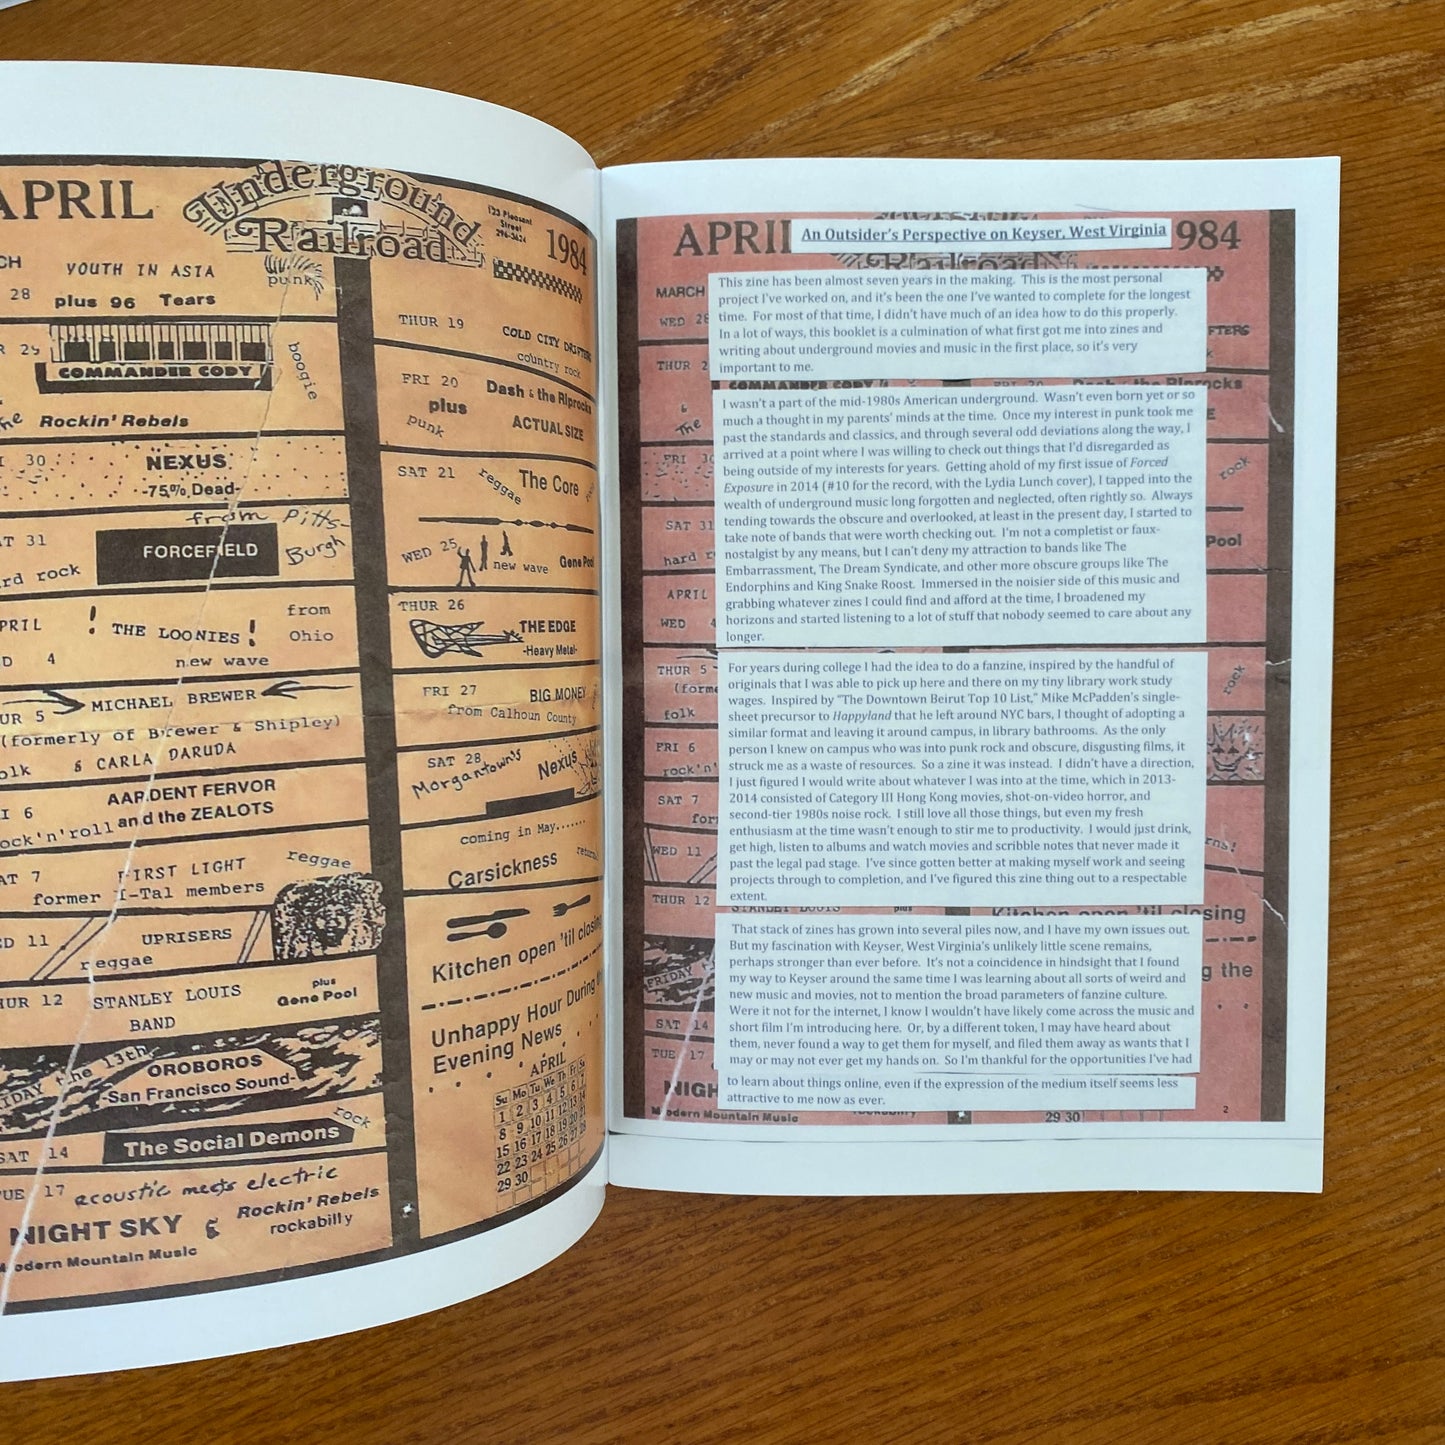 APRIL
Underground
Railroad
123 Pleasant
Street
296-3624
1984
YOUTH IN ASIA
punk
28
plus 96 Tears
29
COMMANDER CODY
boogie
Rockin' Rebels
30
NEXUS
-75% Dead-
from Pitts-
Burgh
31
FORCEFIELD
rock
4
! THE LOONIES!
from
Ohio
new wave
5
MICHAEL BREWER
(formerly of Brewer & Shipley)
& CARLA DARUDA
6
AARDENT FERVOR
and the ZEALOTS
7
FIRST LIGHT
reggae
former I-Tal members
11
UPRISERS
reggae
12
STANLEY LOUIS
BAND
plus
Gene Pool
the 13th
OROBOROS
-San Francisco Sound-
14
The Social Demons
rock
17
acoustic meets electric
NIGHT SKY
&
Rockin' Rebels
rockabilly
Mountain Music
THUR 19
COLD CITY DRIFTERS
country rock
FRI 20
plus
punk
Dash & the Riprocks
ACTUAL SIZE
SAT 21
reggae
The Core
WED 25
new wave
Gene Pool
THUR 26
THE EDGE
-Heavy Metal-
FRI 27
BIG MONEY
from Calhoun County
SAT 28
Morgantown's
Nexus
coming in May.......
Carsickness
Kitchen open 'til closing
Unhappy Hour During
Evening News
APRIL
Su Mo Tu We Th Fr Sa
1 2 3 4 5 6 7
8 9 10 11 12 13 14
15 16 17 18 19 20 21
22 23 24 25 26 27 28
29 30
An Outsider's Perspective on Keyser, West Virginia
This zine has been almost seven years in the making. This is the most personal
project I've worked on, and it's been the one I've wanted to complete for the longest
time. For most of that time, I didn't have much of an idea how to do this properly.
In a lot of ways, this booklet is a culmination of what first got me into zines and
writing about underground movies and music in the first place, so it's very
important to me.
I wasn't a part of the mid-1980s American underground. Wasn't even born yet or so
much a thought in my parents' minds at the time. Once my interest in punk took me
past the standards and classics, and through several odd deviations along the way, I
arrived at a point where I was willing to check out things that I'd disregarded as
being outside of my interests for years. Getting ahold of my first issue of Forced
Exposure in 2014 (#10 for the record, with the Lydia Lunch cover), I tapped into the
wealth of underground music long forgotten and neglected, often rightly so. Always
tending towards the obscure and overlooked, at least in the present day, I started to
take note of bands that were worth checking out. I'm not a completist or faux-
nostalgist by any means, but I can't deny my attraction to bands like The
Embarrassment, The Dream Syndicate, and other more obscure groups like The
Endorphins and King Snake Roost. Immersed in the noisier side of this music and
grabbing whatever zines I could find and afford at the time, I broadened my
horizons and started listening to a lot of stuff that nobody seemed to care about any
longer.
For years during college I had the idea to do a fanzine, inspired by the handful of
originals that I was able to pick up here and there on my tiny library work study
wages. Inspired by "The Downtown Beirut Top 10 List," Mike McPadden's single-
sheet precursor to Happyland that he left around NYC bars, I thought of adopting a
similar format and leaving it around campus, in library bathrooms. As the only
person I knew on campus who was into punk rock and obscure, disgusting films, it
struck me as a waste of resources. So a zine it was instead. I didn't have a direction,
I just figured I would write about whatever I was into at the time, which in 2013-
2014 consisted of Category III Hong Kong movies, shot-on-video horror, and
second-tier 1980s noise rock. I still love all those things, but even my fresh
enthusiasm at the time wasn't enough to stir me to productivity. I would just drink,
get high, listen to albums and watch movies and scribble notes that never made it
past the legal pad stage. I've since gotten better at making myself work and seeing
projects through to completion, and I've figured this zine thing out to a respectable
extent.
That stack of zines has grown into several piles now, and I have my own issues out.
But my fascination with Keyser, West Virginia's unlikely little scene remains,
perhaps stronger than ever before. It's not a coincidence in hindsight that I found
my way to Keyser around the same time I was learning about all sorts of weird and
new music and movies, not to mention the broad parameters of fanzine culture.
Were it not for the internet, I know I wouldn't have likely come across the music and
short film I'm introducing here. Or, by a different token, I may have heard about
them, never found a way to get them for myself, and filed them away as wants that I
may or may not ever get my hands on. So I'm thankful for the opportunities I've had
to learn about things online, even if the expression of the medium itself seems less
attractive to me now as ever.
2